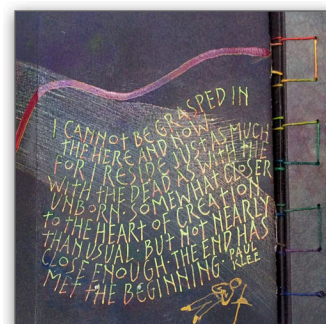 I CANNOT BE GRASPED IN
THE HERE AND NOW
FOR I RESIDE JUST AS MUCH
WITH THE DEAD AS WITH THE
UNBORN · SOMEWHAT CLOSER
TO THE HEART OF CREATION
THAN USUAL · BUT NOT NEARLY
CLOSE ENOUGH. THE END HAS
MET THE BEGINNING ·
PAUL
KLEE